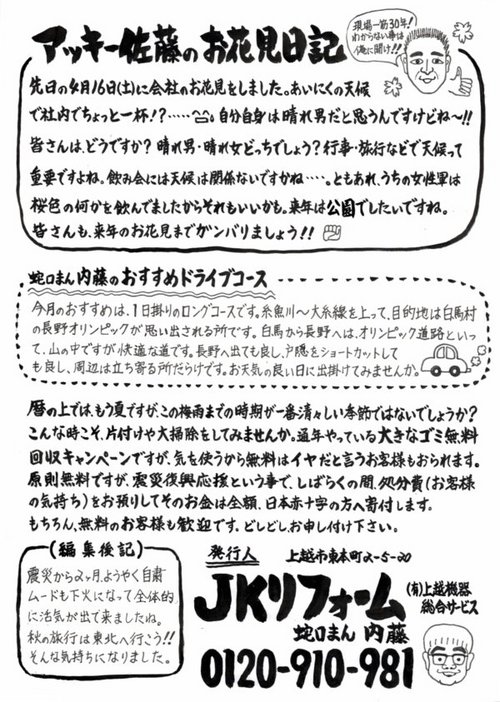 アッキー佐藤のお花見日記
現場一筋30年!
わからない事は
俺に聞け!!
先日の4月16日(土)に会社のお花見をしました。あいにくの天候
で社内でちょっと一杯!?‥‥‥自分自身は晴れ男だと思うんですけどね〜!!
皆さんは、どうですか?晴れ男・晴れ女どっちでしょう?行事・旅行などで天候って
重要ですよね。飲み会には天候は関係ないですかね‥‥。ともあれ、うちの女性軍は
桜色の何かを飲んでましたからそれもいいかも。来年は公園でしたいですね。
皆さんも、来年のお花見までガンバりましょう!!
蛇口まん内藤のおすすめドライブコース
今月のおすすめは、1日掛りのロングコースです。糸魚川〜大糸線を上って、目的地は白馬村
の長野オリンピックが思い出される所です。白馬から長野へは、オリンピック道路といっ
て、山の中ですが快適な道です。長野へ出ても良し、戸隠をショートカットして
も良し、周辺は立ち寄る所だらけです。お天気の良い日に出掛けてみませんか。
暦の上では、もう夏ですが、この梅雨までの時期が一番清々しい季節ではないでしょうか?
こんな時こそ、片付けや大掃除をしてみませんか。通年やっている大きなゴミ無料
回収キャンペーンですが、気を使うから無料はイヤだと言うお客様もおられます。
原則無料ですが、震災復興応援という事で、しばらくの間、処分費(お客様
の気持ち)をお預りしてそのお金は全額、日本赤十字の方へ寄付します。
もちろん、無料のお客様も歓迎です。どしどし、お申し付け下さい。
(編集後記)
震災から2ヶ月、ようやく自粛
ムードも下火になって全体的
に活気が出て来ましたね。
秋の旅行は東北へ行こう!!
そんな気持ちになりました。
発行人 上越市東本町2-5-20
JKリフォーム
(有)上越機器
総合サービス
蛇口まん 内藤
0120-910-981